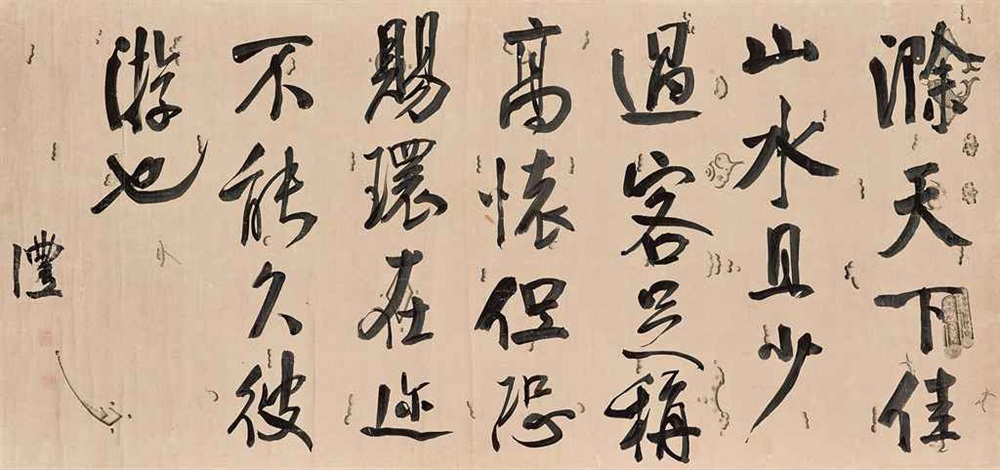 滁天下佳
山水且少
過客足稱
高懷但恐
賜環在邇
不能久彼
游也
澧